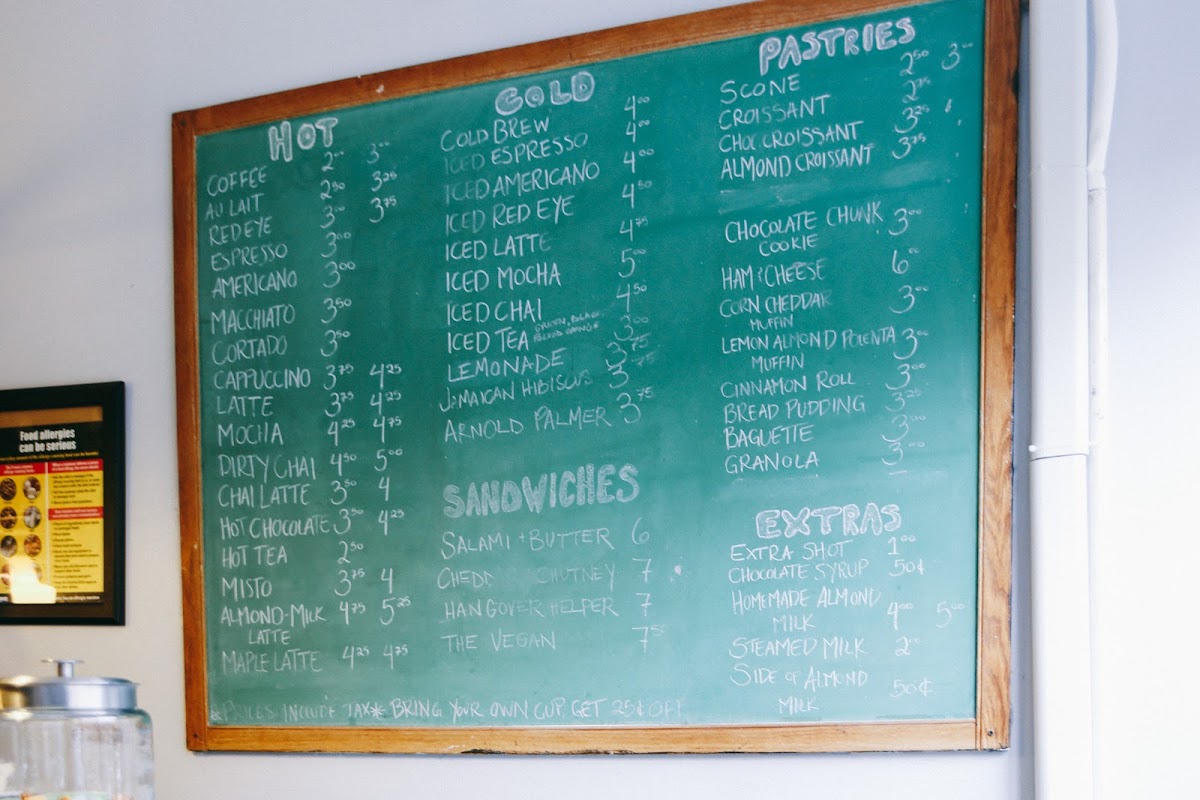 HOT
COFFEE 2⁰⁰ 3⁰⁰
AU LAIT 2⁵⁰ 3²⁵
RED EYE 3⁰⁰ 3⁷⁵
ESPRESSO 3⁰⁰
AMERICANO 3⁰⁰
MACCHIATO 3⁵⁰
CORTADO 3⁵⁰
CAPPUCCINO 3⁷⁵ 4²⁵
LATTE 3⁷⁵ 4²⁵
MOCHA 4²⁵ 4⁷⁵
DIRTY CHAI 4⁵⁰ 5⁰⁰
CHAI LATTE 3⁵⁰ 4
HOT CHOCOLATE 3⁵⁰ 4²⁵
HOT TEA 2⁵⁰
MISTO 3⁷⁵ 4
ALMOND-MILK 4⁷⁵ 5²⁵
LATTE
MAPLE LATTE 4²⁵ 4⁷⁵
COLD
COLD BREW 4⁰⁰
ICED ESPRESSO 4⁰⁰
ICED AMERICANO 4⁰⁰
ICED RED EYE 4⁵⁰
ICED LATTE 4⁷⁵
ICED MOCHA 5⁰⁰
ICED CHAI 4⁵⁰
ICED TEA 3⁰⁰
LEMONADE 3⁷⁵
JAMAICAN HIBISCUS 3⁷⁵
ARNOLD PALMER 3⁷⁵
SANDWICHES
SALAMI + BUTTER 6
CHEDD CHUTNEY 7
HANGOVER HELPER 7
THE VEGAN 7⁵⁰
PASTRIES
SCONE 2⁵⁰ 3⁰⁰
CROISSANT 2⁷⁵
CHOC CROISSANT 3²⁵
ALMOND CROISSANT 3⁷⁵
CHOCOLATE CHUNK 3⁰⁰
COOKIE
HAM & CHEESE 6⁰⁰
CORN CHEDDAR 3⁰⁰
MUFFIN
LEMON ALMOND POLENTA 3⁰⁰
MUFFIN
CINNAMON ROLL 3⁰⁰
BREAD PUDDING 3²⁵
BAGUETTE 3⁰⁰
GRANOLA 3⁰⁰
EXTRAS
EXTRA SHOT 1⁰⁰
CHOCOLATE SYRUP 50¢
HOMEMADE ALMOND
MILK 4⁰⁰ 5⁰⁰
STEAMED MILK 2⁰⁰
SIDE OF ALMOND
MILK 50¢
*PRICES INCLUDE TAX* BRING YOUR OWN CUP, GET 25¢ OFF
Food allergies
can be serious